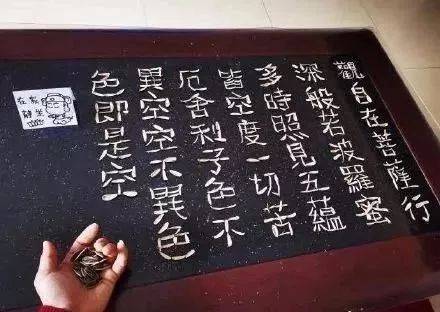 觀自在菩薩行
深般若波羅蜜
多時照見五蘊
皆空度一切苦
厄舍利子色不
異空空不異色
色即是空